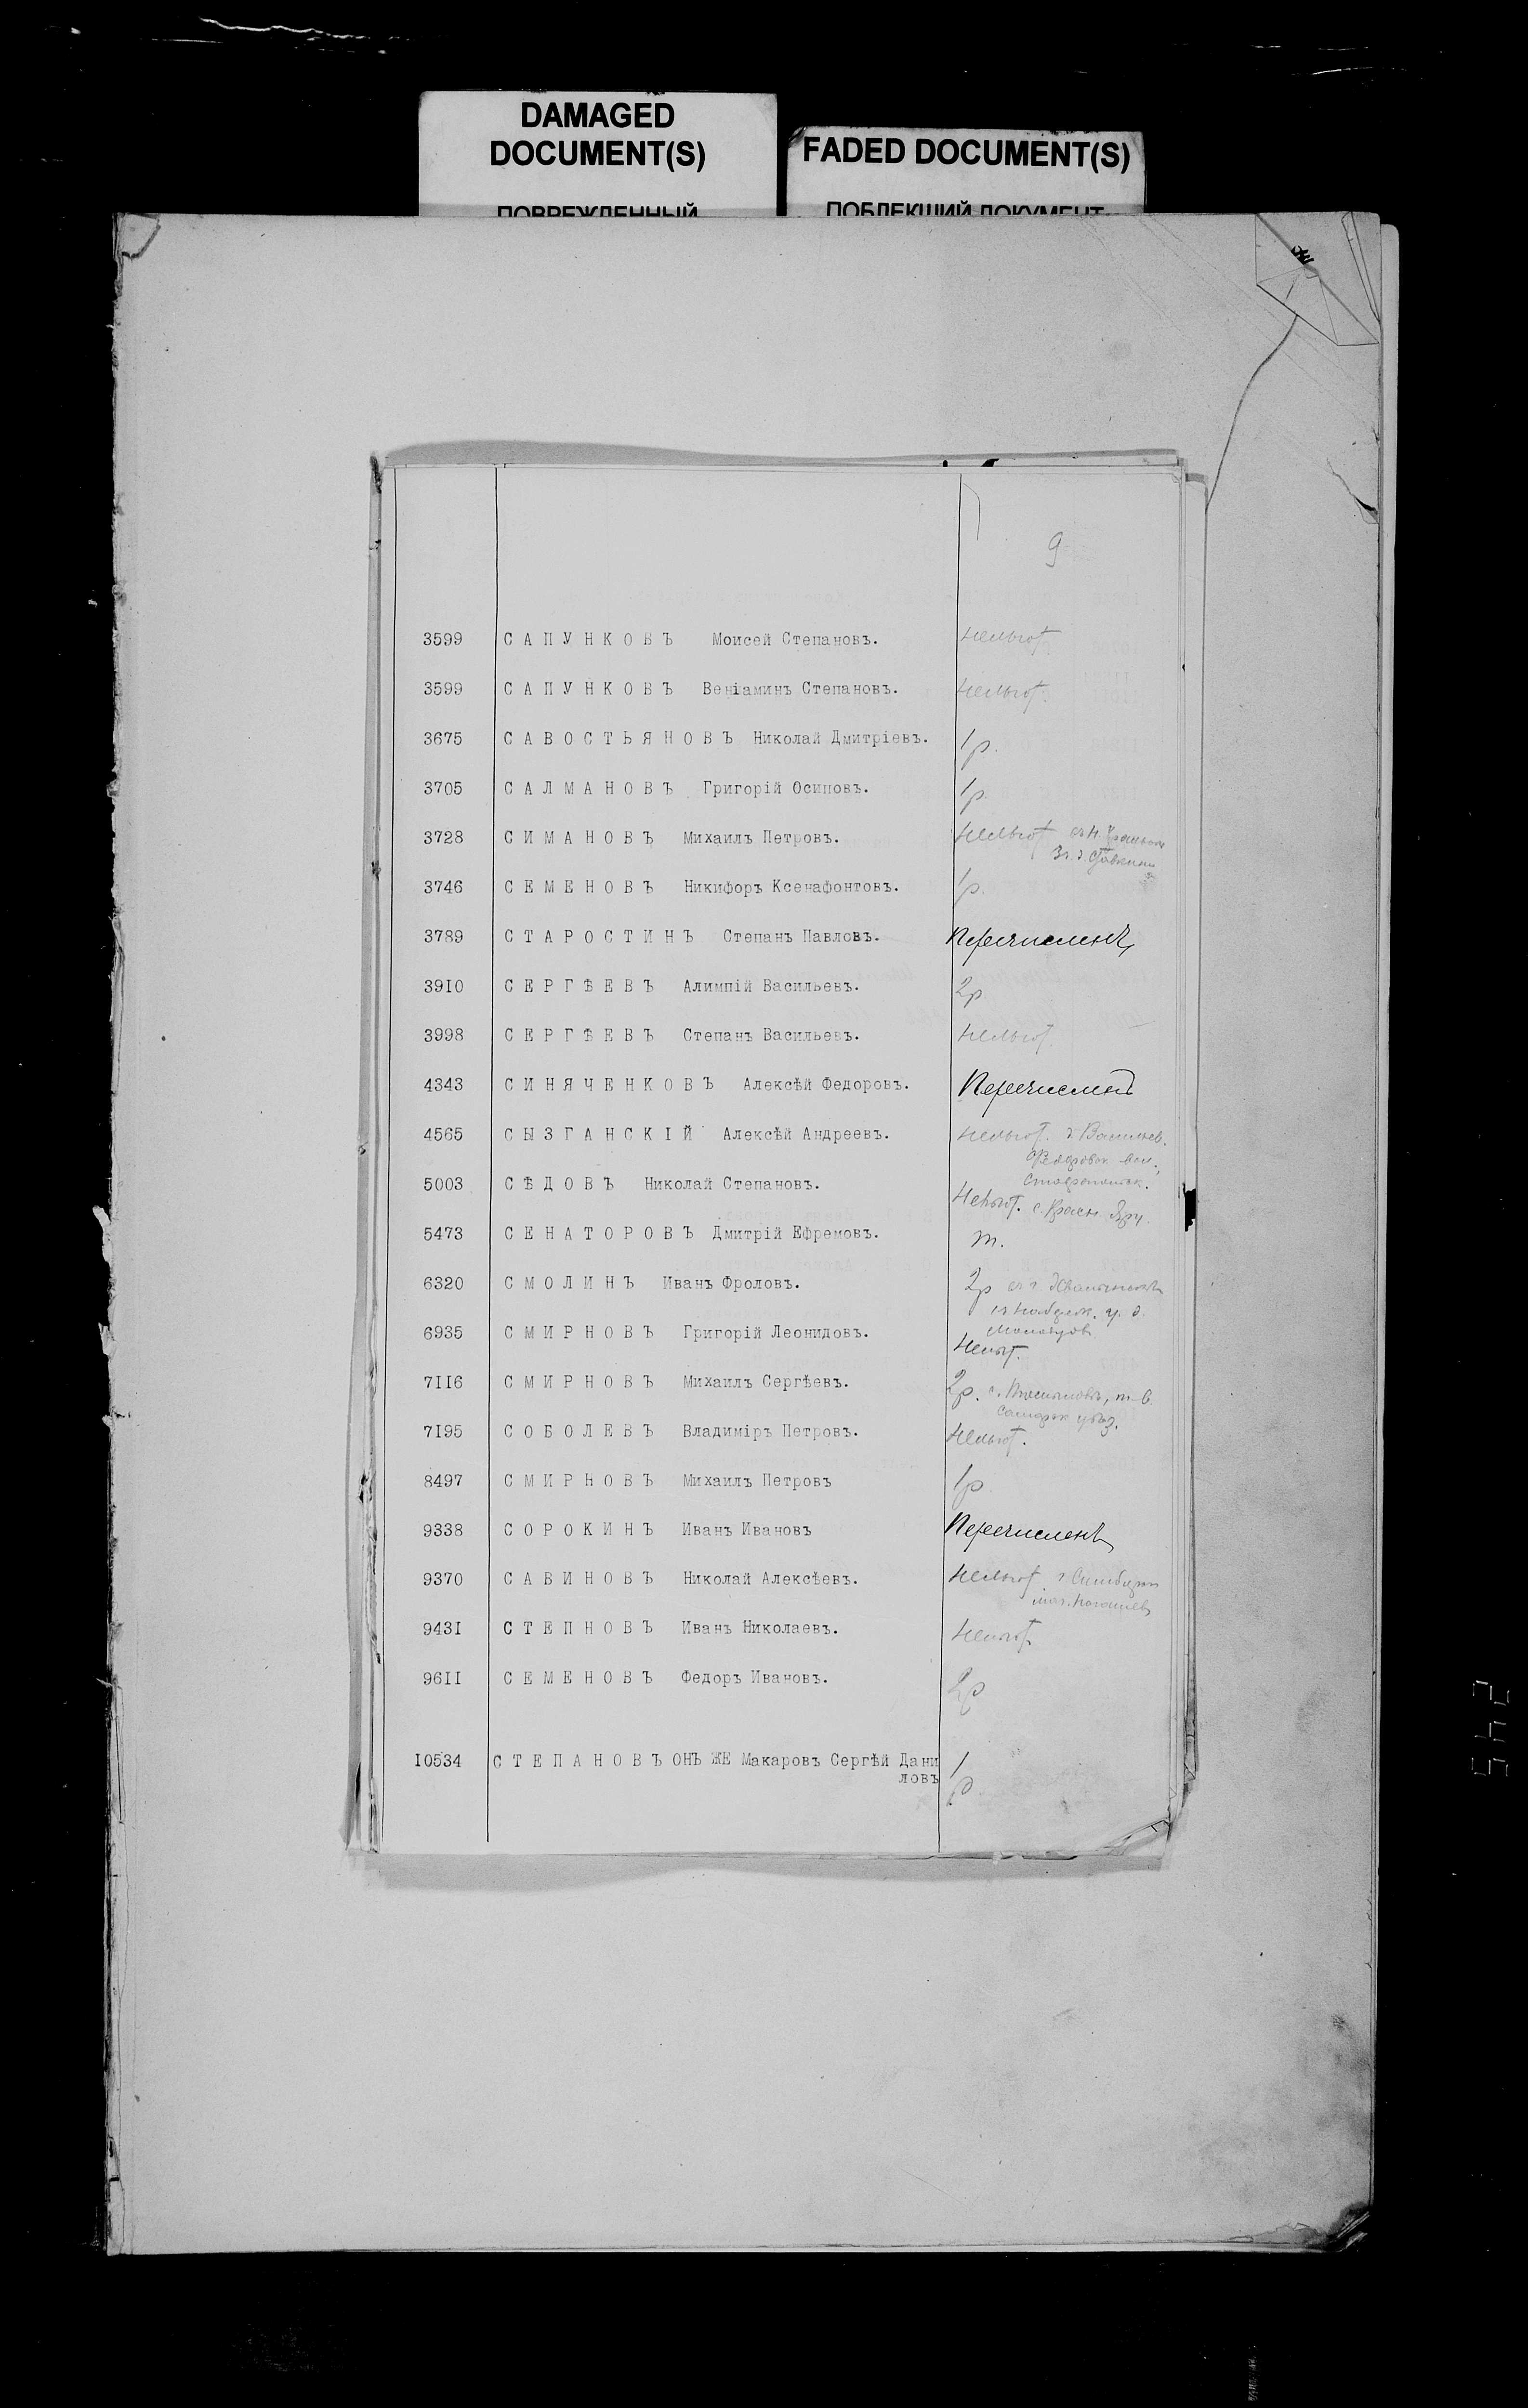 DAMAGED
DOCUMENT(S)
ПОВРЕЖДЕННЫЙ
FADED DOCUMENT(S)
ПОБЛЕКШИЙ ДОКУМЕНТ
9
3599 САПУНКОВЪ Моисей Степановъ. Нельгот.
3599 САПУНКОВЪ Веніаминъ Степановъ. Нельгот.
3675 САВОСТЬЯНОВЪ Николай Дмитріевъ. 1р.
3705 САЛМАНОВЪ Григорій Осиповъ. 1р.
3728 СИМАНОВЪ Михаилъ Петровъ. Нельгот
3746 СЕМЕНОВЪ Никифоръ Ксенафонтовъ. 1р.
3789 СТАРОСТИНЪ Степанъ Павловъ. Перечисленъ
3910 СЕРГѢЕВЪ Алимпій Васильевъ. 2р
3998 СЕРГѢЕВЪ Степанъ Васильевъ. Нельгот.
4343 СИНЯЧЕНКОВЪ Алексѣй Федоровъ. Перечисленъ
4565 СЫЗГАНСКІЙ Алексѣй Андреевъ. Нельгот. д. Васильев.
Федоровск вол.,
Ставропольск.
5003 СѢДОВЪ Николай Степановъ. Нельгот. с. Красн. Яру.
5473 СЕНАТОРОВЪ Дмитрій Ефремовъ. т.
6320 СМОЛИНЪ Иванъ Фроловъ. 2р
6935 СМИРНОВЪ Григорій Леонидовъ. Нельгот.
7116 СМИРНОВЪ Михаилъ Сергѣевъ. 2р.
Самарск уѣзд.
7195 СОБОЛЕВЪ Владиміръ Петровъ. Нельгот.
8497 СМИРНОВЪ Михаилъ Петровъ 1р
9338 СОРОКИНЪ Иванъ Ивановъ Перечисленъ
9370 САВИНОВЪ Николай Алексѣевъ. Нельгот
9431 СТЕПНОВЪ Иванъ Николаевъ. Нельгот.
9611 СЕМЕНОВЪ Федоръ Ивановъ. 2р
10534 СТЕПАНОВЪ ОНЪ ЖЕ Макаровъ Сергѣй Дани
ловъ 1р.
245